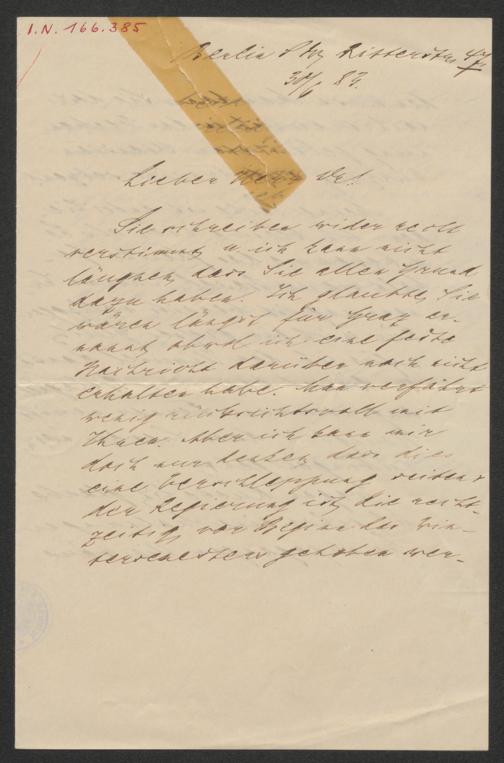 I.N. 166.385
Berlin S Ritterstr. 47
30/6 83.
Lieber Herr Dr!
Sie schreiben wider recht
verstimmt, u ich kann nicht
läugnen, dass Sie allen Grund
dazu haben. Ich glaubte, Sie
wären längst für Graz er-
nannt obwol ich eine feste
Nachricht darüber noch nicht
erhalten habe. Man verfährt
wenig rücksichtsvoll mit
Ihnen. Aber ich kann mir
doch nur denken, dass dies
eine Verschleppung seitens
der Regierung ist, die recht-
zeitig vor Beginn des Win-
tersemesters gehoben wer-